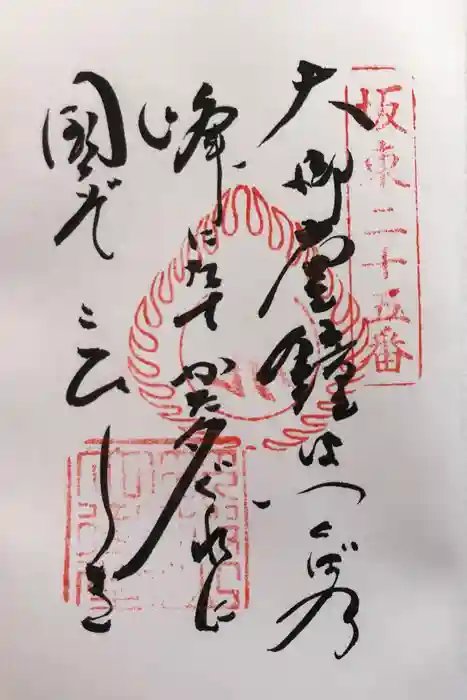 坂東二十五番
大御堂鐘はつくば乃
峰にたてかた夕ぐれに
國ぞこひしき